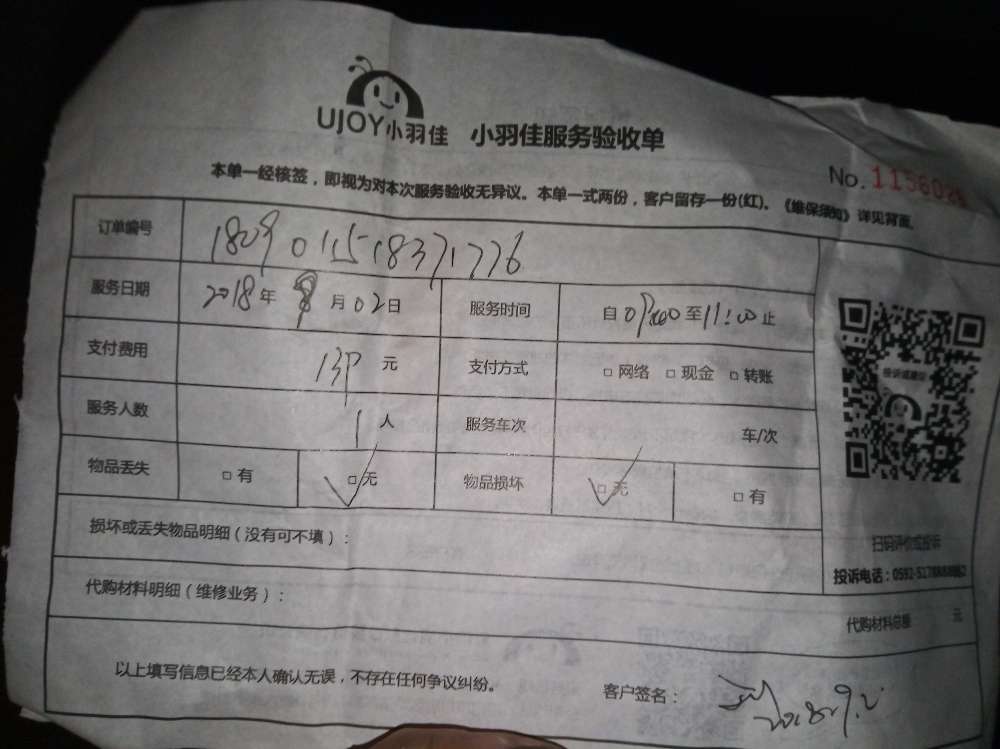 UJOY小羽佳 小羽佳服务验收单
No.115602
本单一经核签，即视为对本次服务验收无异议。本单一式两份，客户留存一份(红)。《维保须知》详见背面。
订单编号 1809011518371776
服务日期 2018年 月02日 服务时间 自 至11:00止
支付费用 元 支付方式 □网络 □现金 □转账
服务人数 1人 服务车次 车/次
物品丢失 □有 □无 物品损坏 □无 □有
损坏或丢失物品明细（没有可不填）：
扫码评价或投诉
投诉电话：0592-
代购材料明细（维修业务）：
代购材料总额 元
以上填写信息已经本人确认无误，不存在任何争议纠纷。 客户签名： 2018.9.2